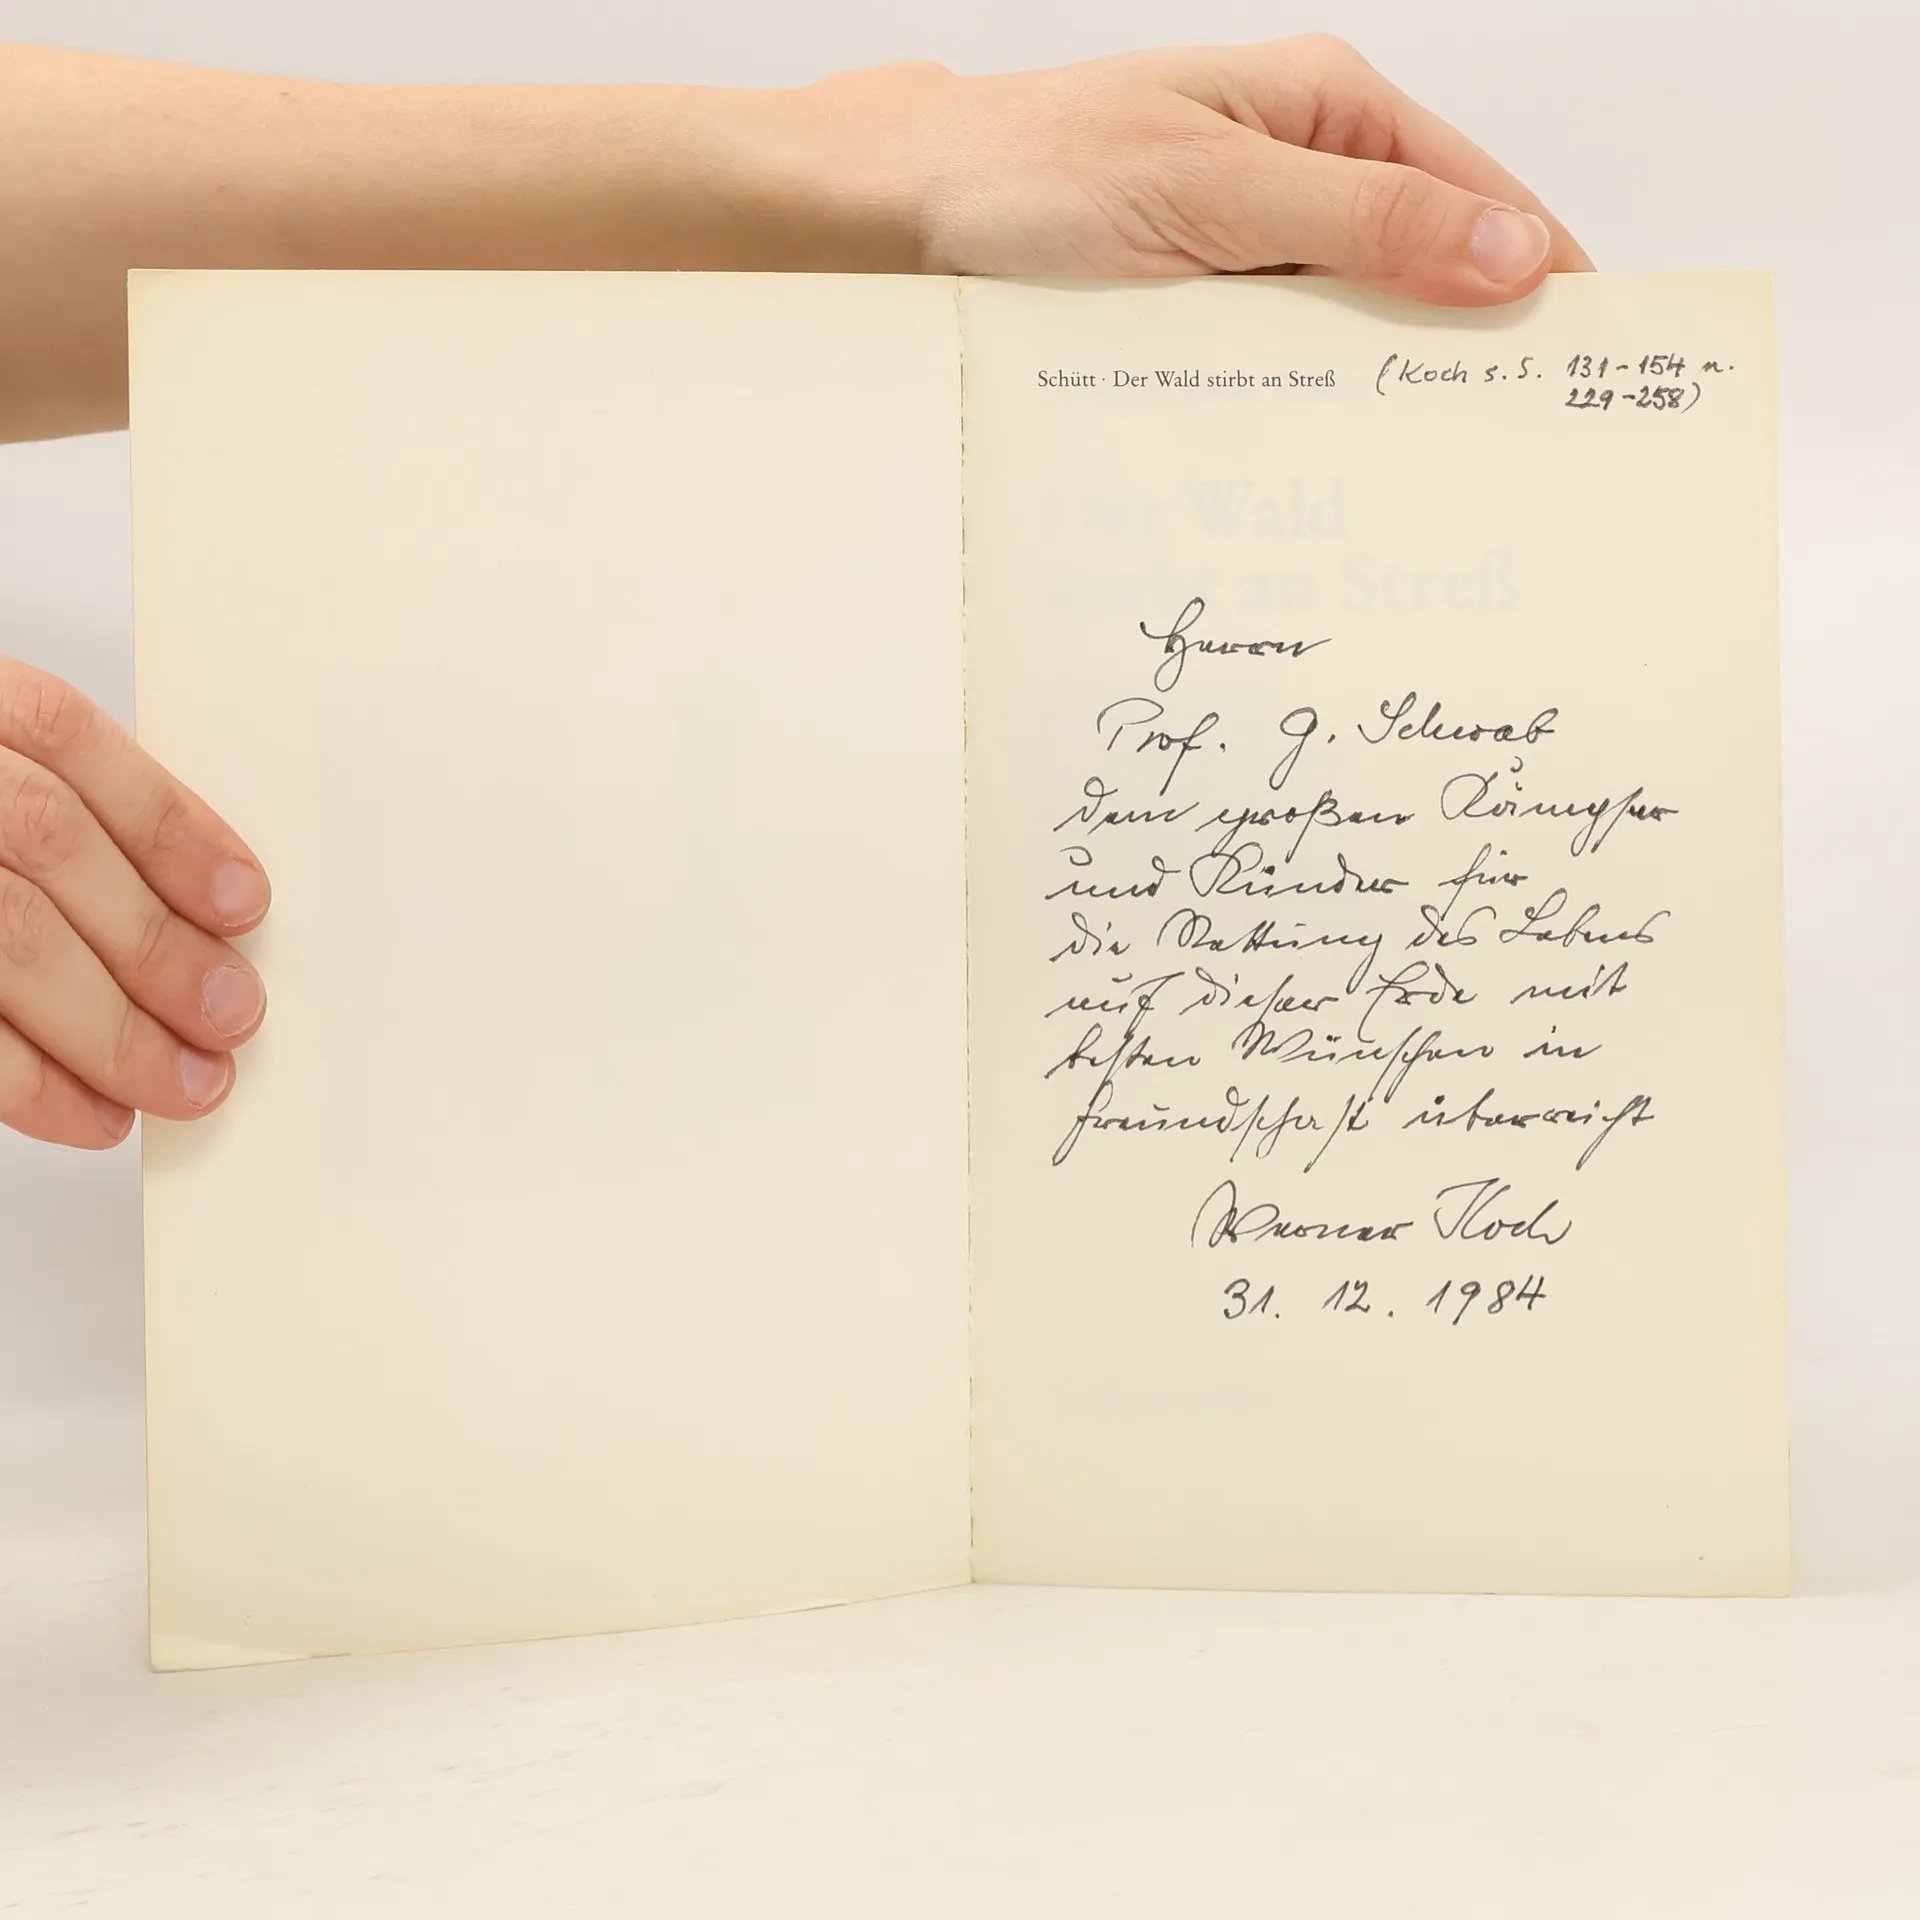 Schütt · Der Wald stirbt an Streß (Koch s. S. 131-154 u.
229-258)
Wald
an Streß
Herrn
Prof. G. Schwab
dem großen Kämpfer
und Künder für
die Rettung des Lebens
auf dieser Erde mit
besten Wünschen in
Freundschaft überreicht
Werner Koch
31. 12. 1984